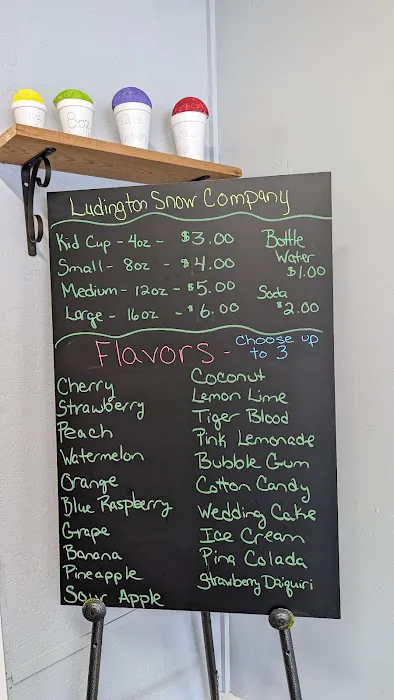 8oz
Ludington Snow Company
Kid Cup - 4oz - $3.00
Small - 8oz - $4.00
Medium - 12oz - $5.00
Large - 16oz - $6.00
Bottle
Water
$1.00
Soda
$2.00
Flavors - Choose up
to 3
Cherry
Strawberry
Peach
Watermelon
Orange
Blue Raspberry
Grape
Banana
Pineapple
Sour Apple
Coconut
Lemon Lime
Tiger Blood
Pink Lemonade
Bubble Gum
Cotton Candy
Wedding Cake
Ice Cream
Pina Colada
Strawberry Daiquiri